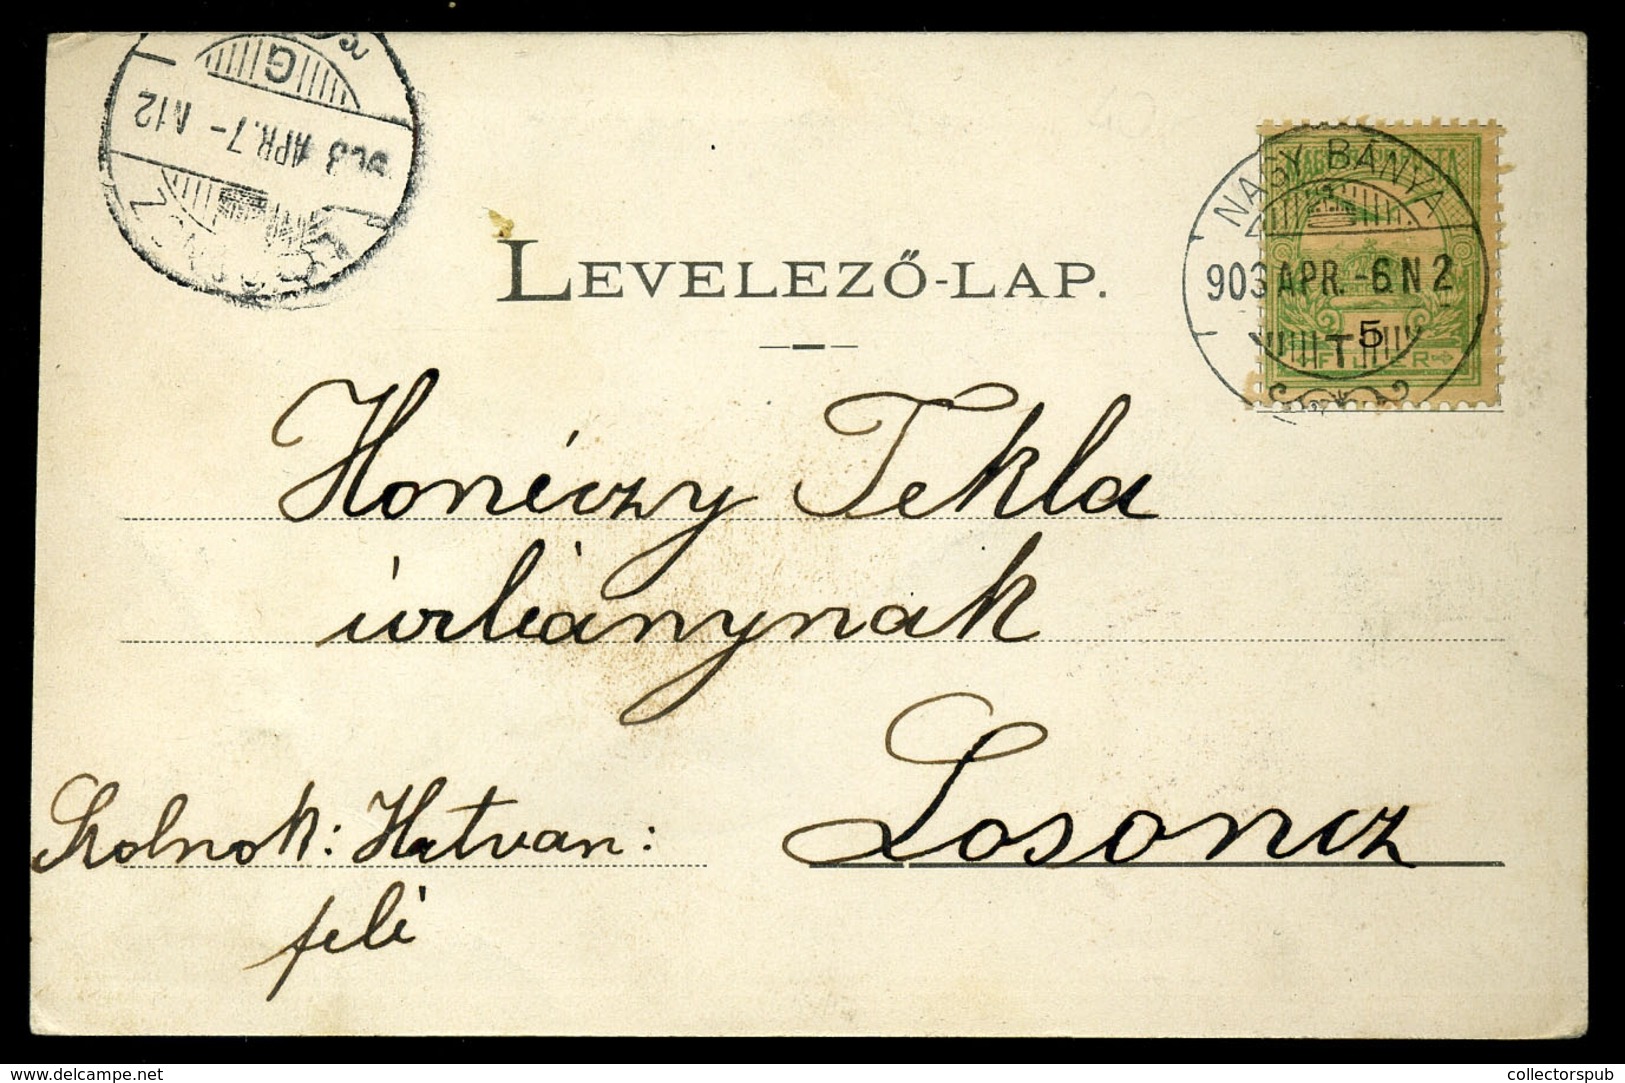 G
903 APR. 7- N12
LOSONCZ
MAGYAR POSTA
NAGY-BÁNYA
903 APR. -6 N 2
T
5
FILLÉR
LEVELEZŐ-LAP.
Honéczy Tekla
úrleánynak
Losoncz
Szolnok: Hatvan:
felé
www.delcampe.net
collectorspub